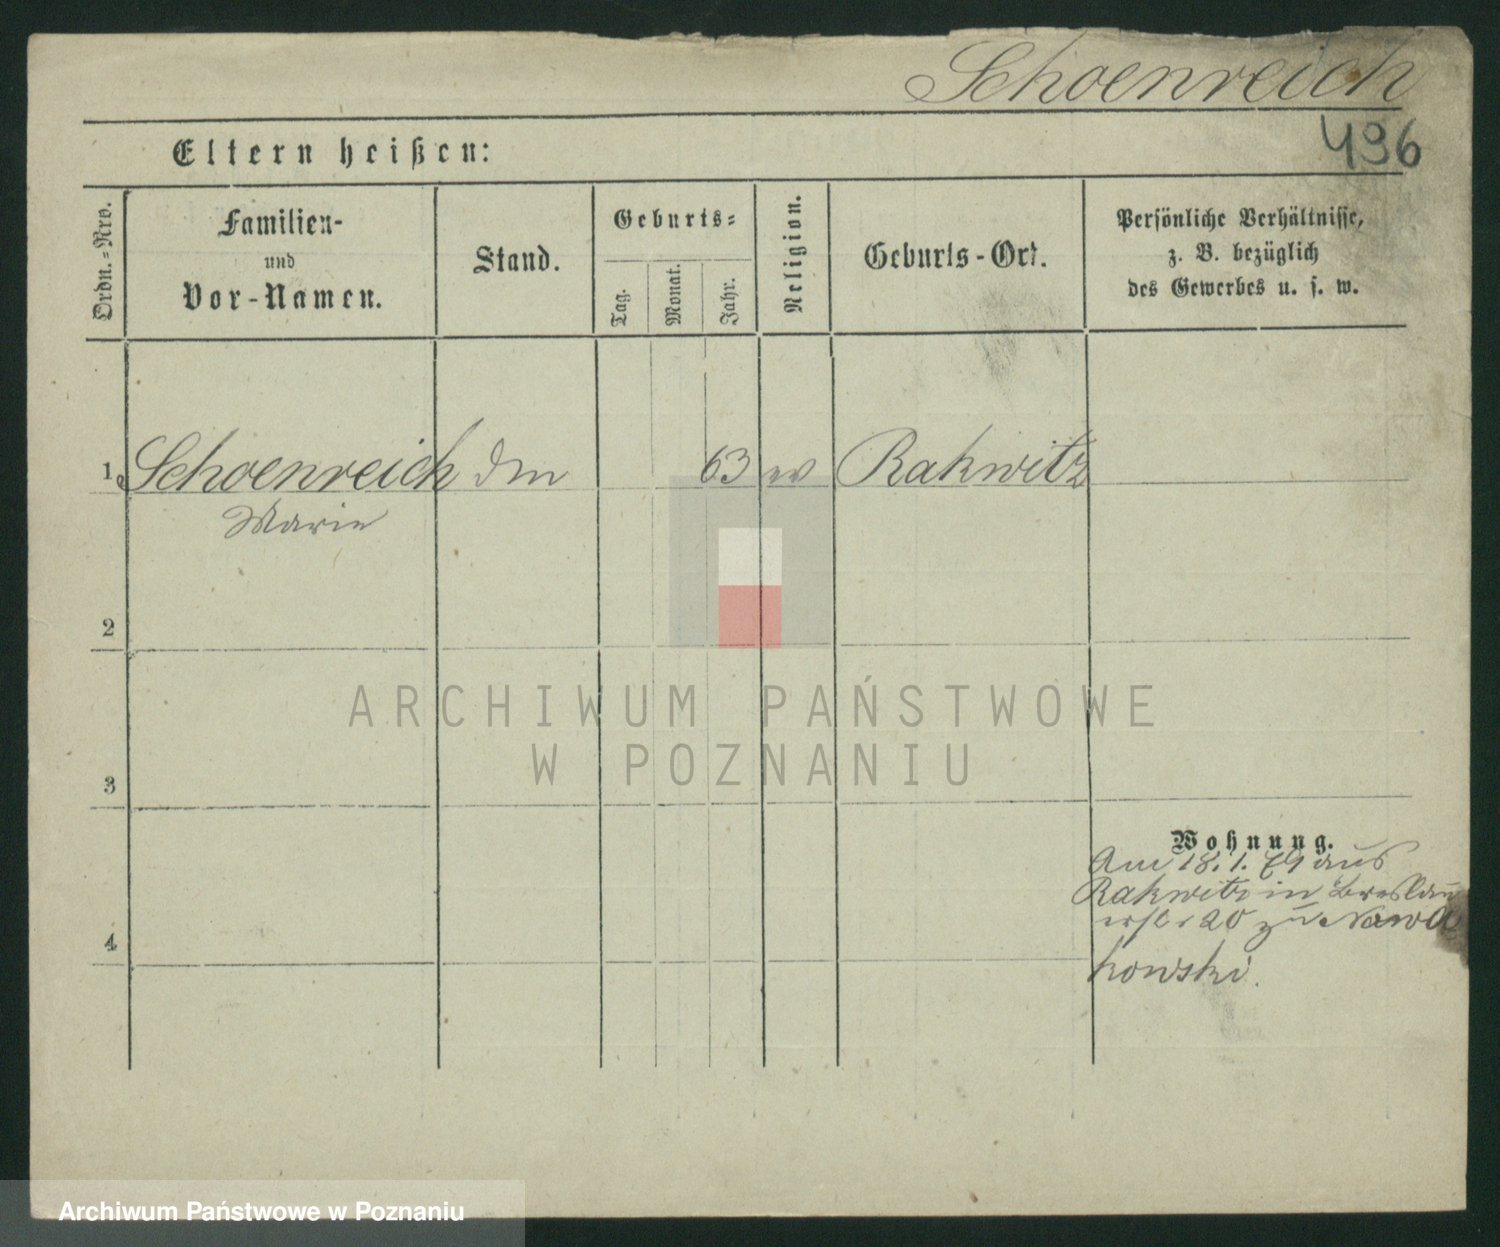 Schoenreich
496
Eltern heißen:
Ordn.-Nro.
Familien-
und
Vor-Namen.
Stand.
Geburts-
Tag.
Monat.
Jahr.
Religion.
Geburts-Ort.
Persönliche Verhältnisse,
z. B. bezüglich
des Gewerbes u. s. w.
1 Schoenreich 63 Rakwitz
Marie
2
3
4
Wohnung.
Am 18. 1. 79 aus
Rakwitz in Breslau
erst. 20 zu Nowa
kowski.
ARCHIWUM PAŃSTWOWE
W POZNANIU
Archiwum Państwowe w Poznaniu